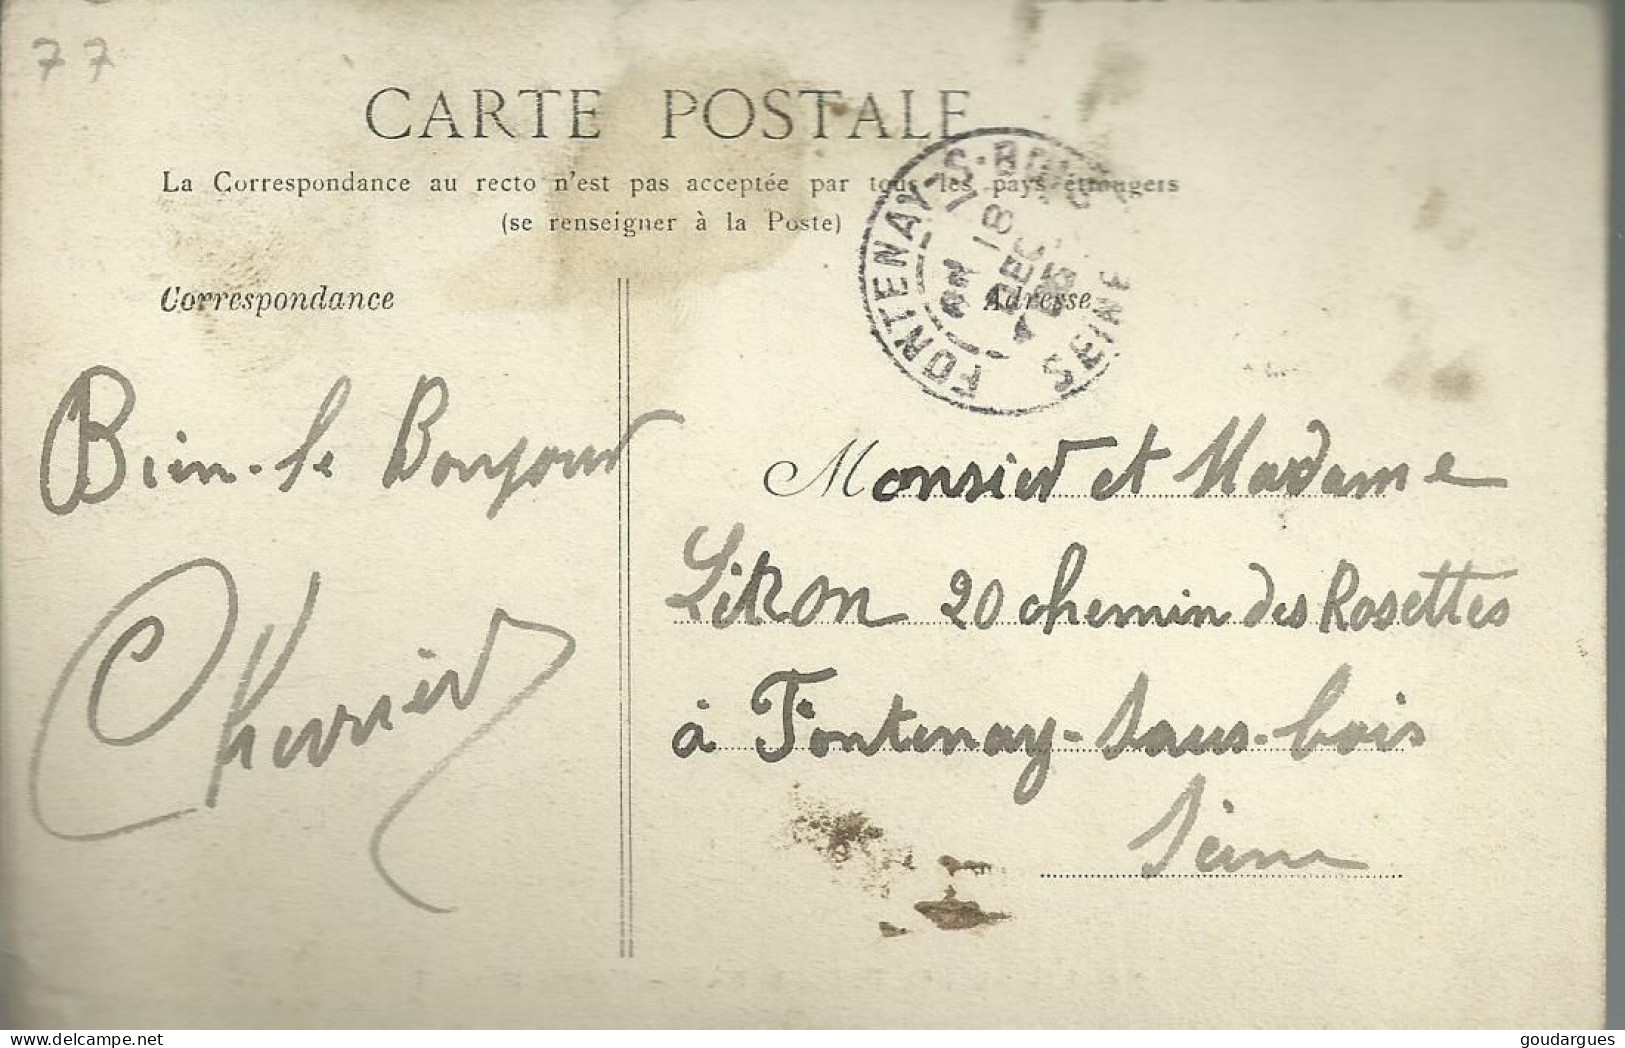 77
CARTE POSTALE
La Correspondance au recto n'est pas acceptée par tous les pays étrangers
(se renseigner à la Poste)
Correspondance
Adresse
FONTENAY-S-BOIS
SEINE
18
DEC
Bien le Bonjour
Chevrier
Monsieur et Madame
Litron 20 chemin des Rosettes
à Fontenay-sous-bois
Seine
goudargues